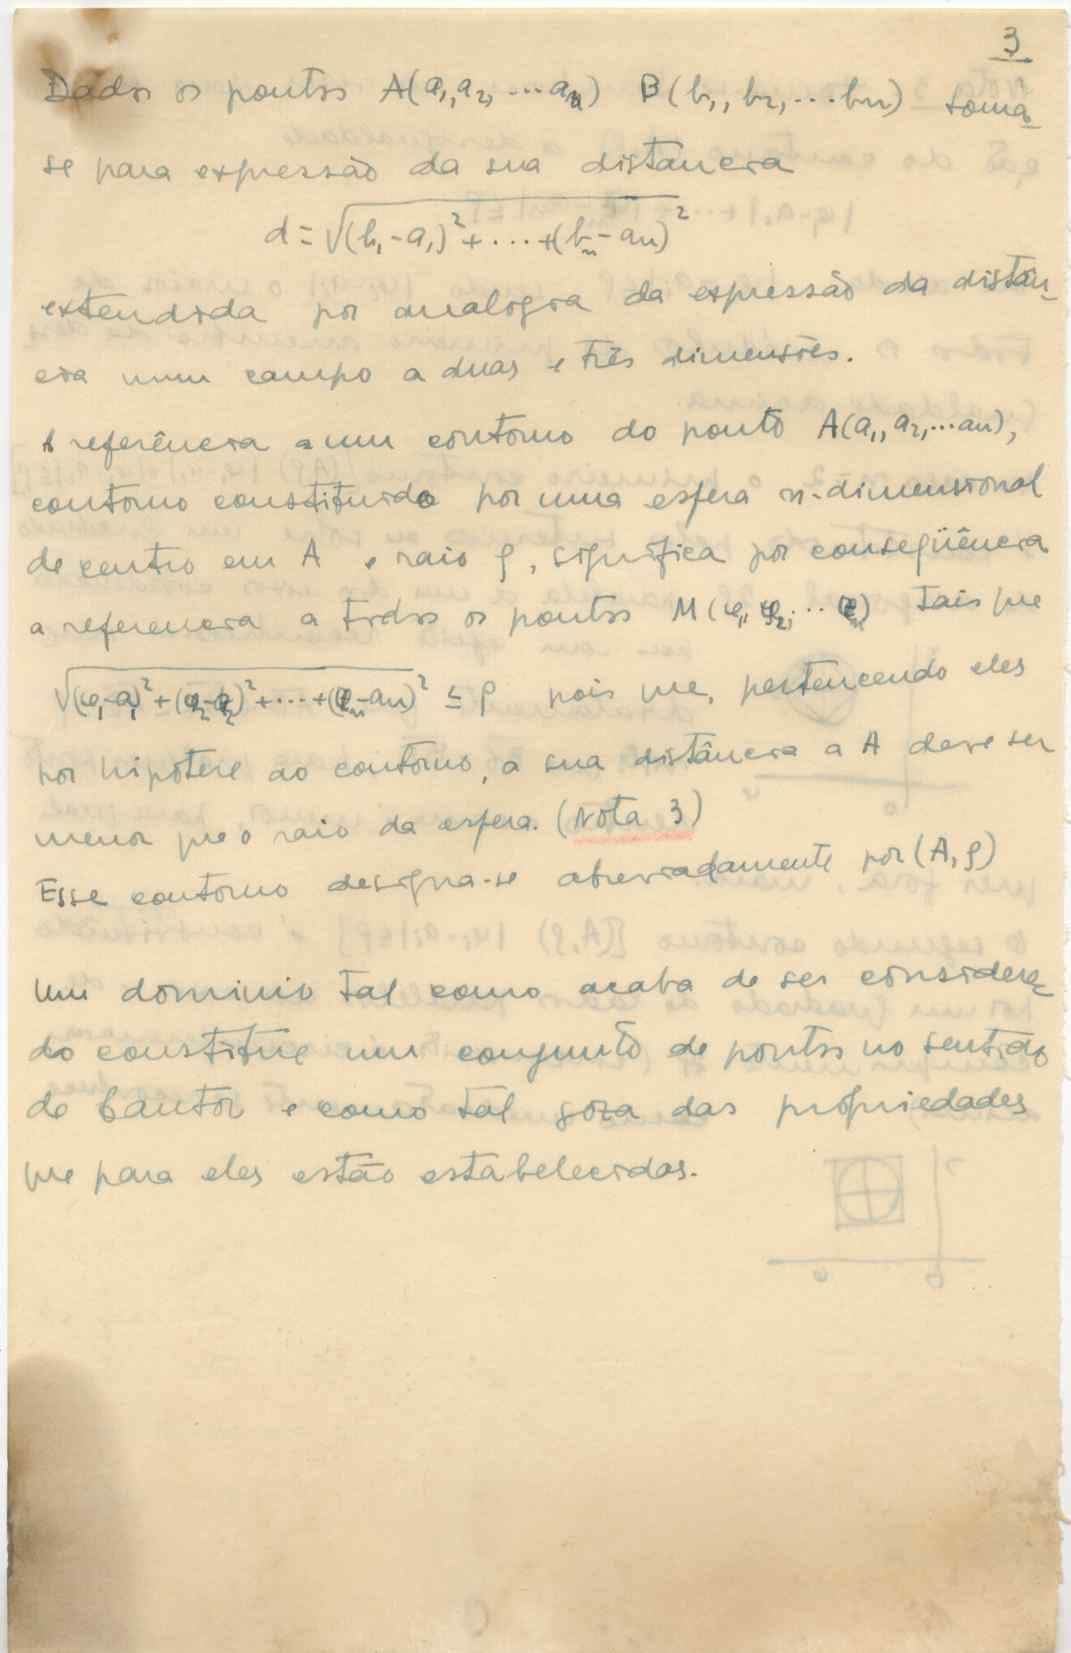 3
Dados os pontos A(a₁, a₂, ... aₙ) B(b₁, b₂, ... bₙ) toma-
se para expressão da sua distancia
d = √(b₁ - a₁)² + ... + (bₙ - aₙ)²
extendida por analogia da expressão da distân-
cia num campo a duas e três dimensões.
A referência a um contorno do ponto A(a₁, a₂, ... aₙ),
contorno constituido por uma esfera n-dimensional
de centro em A e raio ρ, significa por conseqüência
a referencia a todos os pontos M(φ₁, φ₂, ... φₙ) tais que
√(φ₁-a₁)² + (φ₂-a₂)² + ... + (φₙ-aₙ)² ≤ ρ pois que, pertencendo eles
por hipotese ao contorno, a sua distância a A deve ser
menor que o raio da esfera. (Nota 3)
Esse contorno designa-se abreviadamente por (A, ρ)
Um dominio tal como acaba de ser considera-
do constitue um conjunto de pontos no sentido
de Cantor e como tal goza das propriedades
que para eles estão estabelecidas.